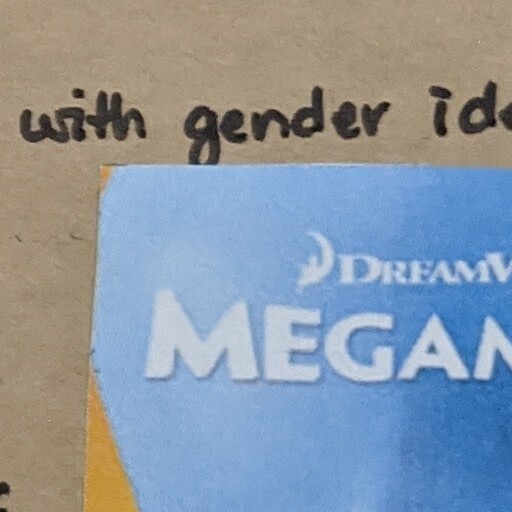 with gender ide
DREAMW
MEGAM